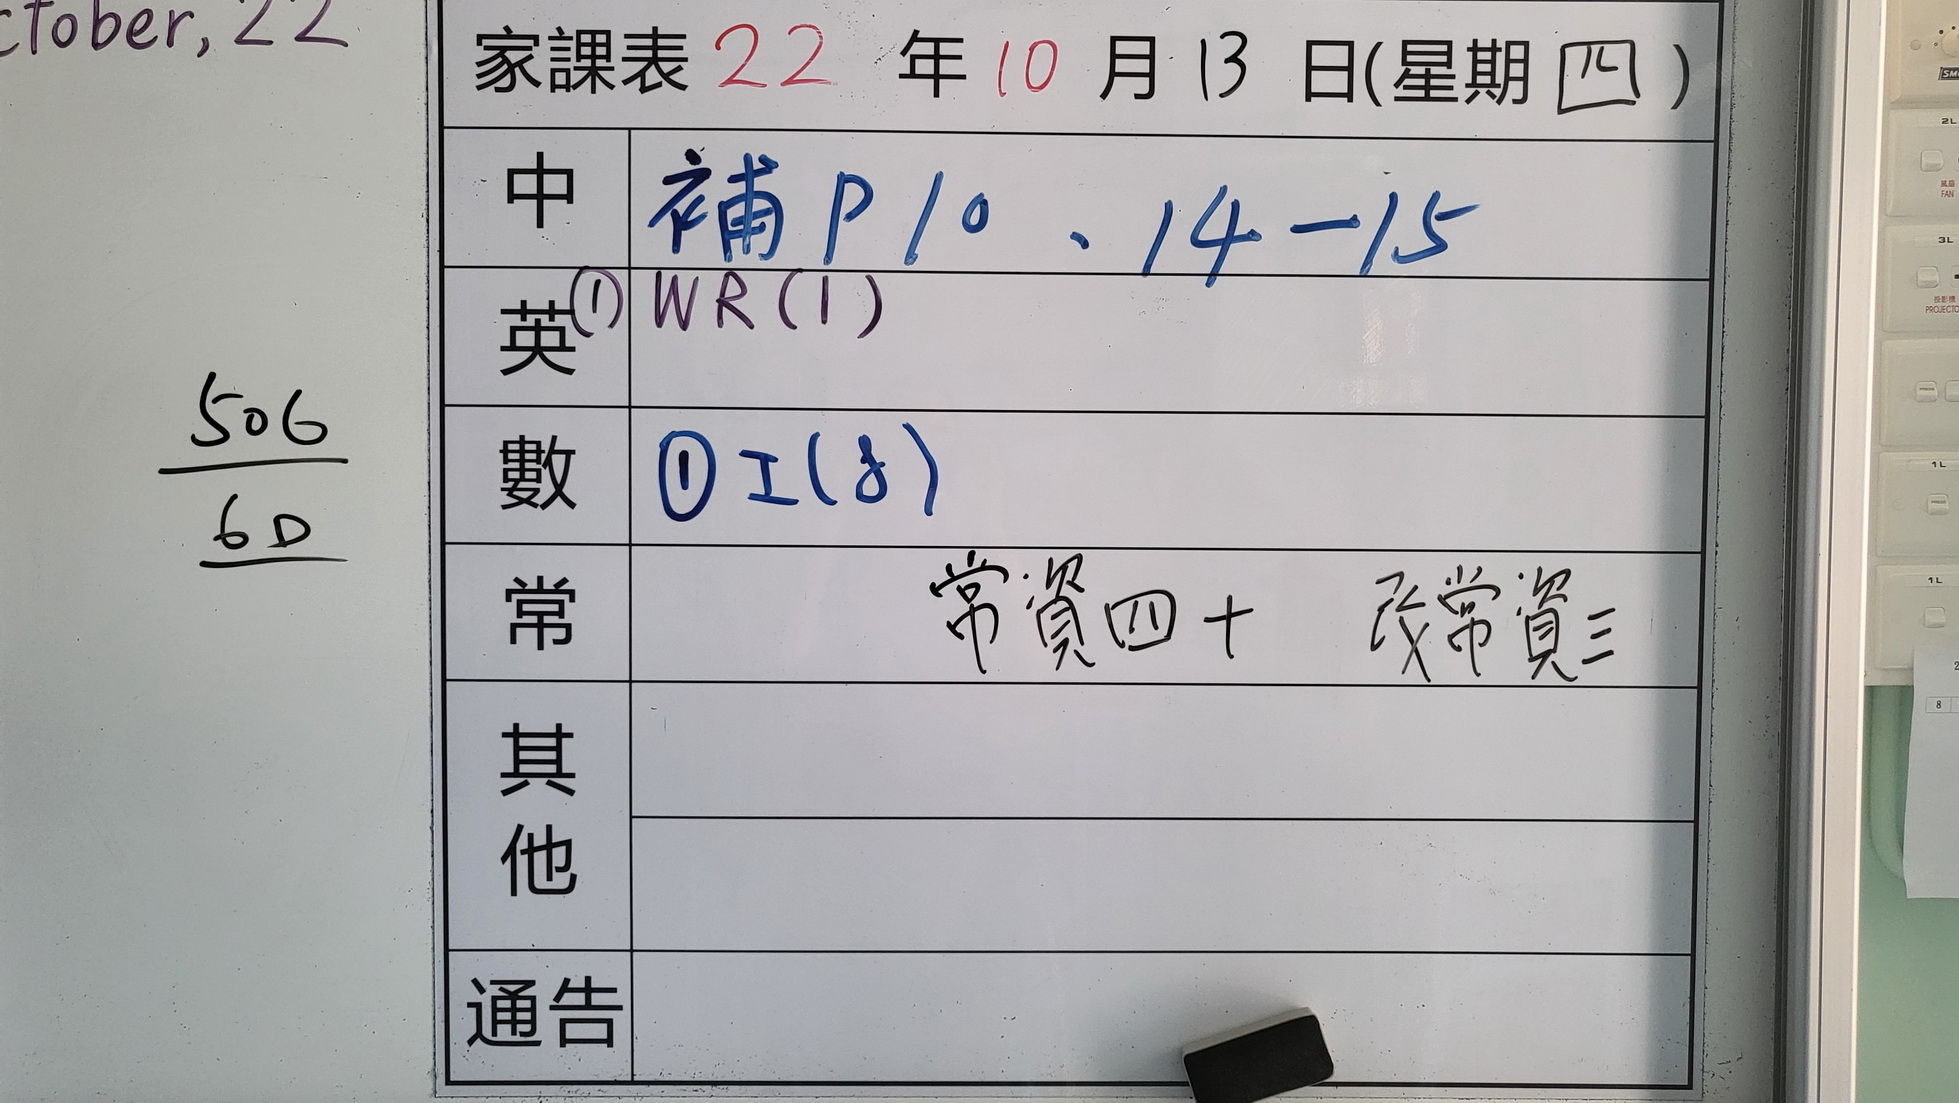 ctober, 22
家課表 22 年 10 月 13 日(星期 四 )
中 補 P 10 、14-15
英 ① WR(1)
數 ① I(8)
常 常資四十 改常資三
其他
通告
506
6D
2L
風扇
FAN
3L
投影機
1L
1L
8